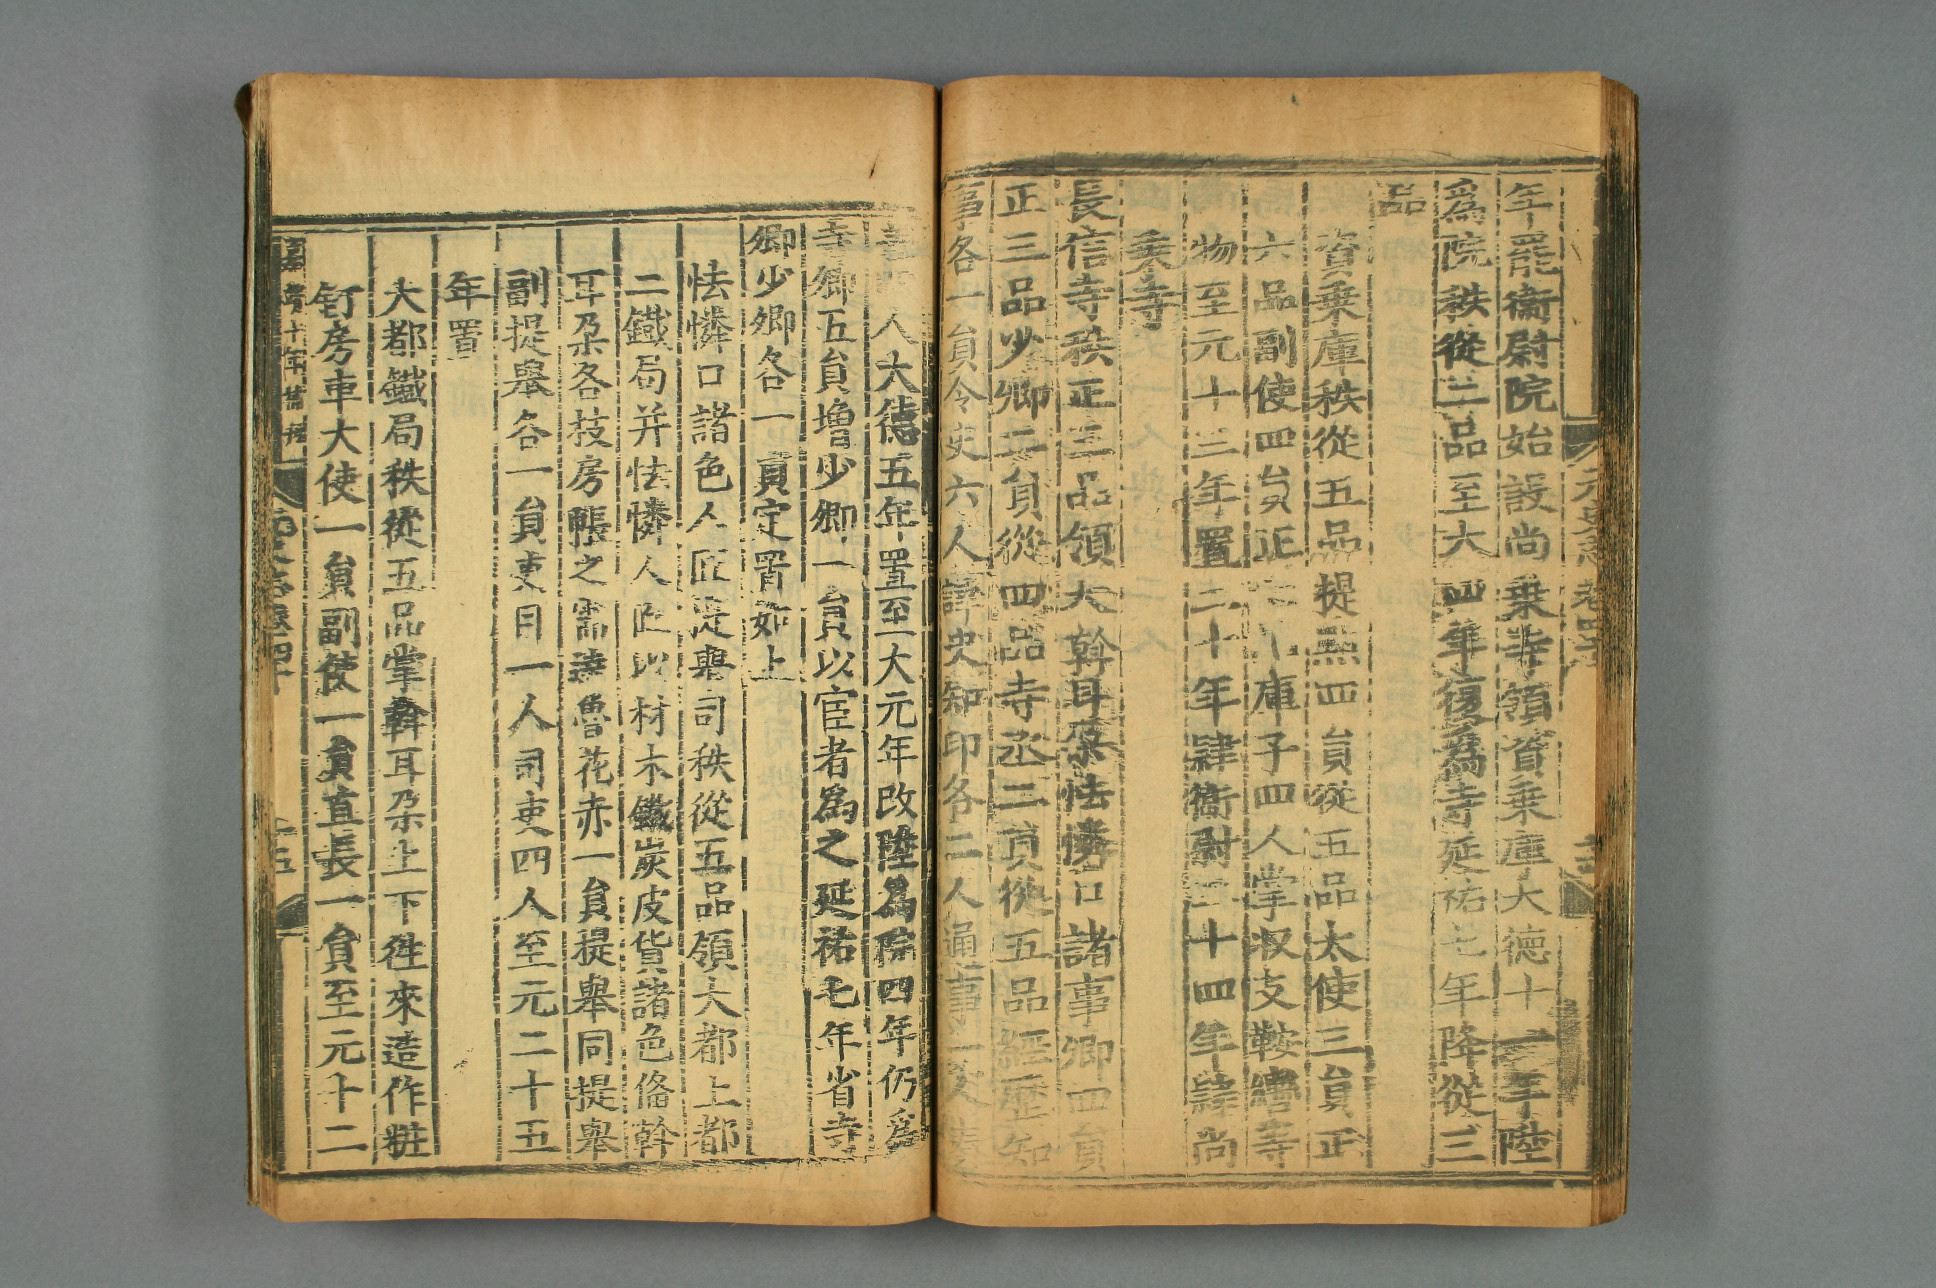 年罷衞尉院始設尚乗寺領資乗庫大德十一年陞
爲院秩從二品至大四年復爲寺延祐七年降從三
品
資乗庫秩從五品提㸃四貟從五品大使三貟正
六品副使四貟正庫子四人掌収支鞍轡等
物至元十三年置二十年肄衞尉二十四年肄尚
乗寺
長信寺秩正三品領大斡耳朶怯憐口諸事卿四貟
正三品少卿二貟從四品寺丞二貟從五品經歴知
事各一貟令史六人譯史知印各二人通事一
人大德五年置至大元年改陞爲院四年仍爲
寺卿五貟增少卿一貟以宦者爲之延祐七年省寺
卿少卿各一貟定置如上
怯憐口諸色人匠提舉司秩從五品領大都上都
二鐵局并怯憐人匠以材木鐵炭皮貨諸色偹斡
耳朶各技房帳之需達魯花赤一貟提舉同提舉
副提舉各一貟吏目一人司吏四人至元二十五
年置
大都鐵局秩從五品掌斡耳朶上下徃來造作粧
釘房車大使一貟副使一貟直長一貟至元十二
元史志卷四十
嘉靖十年補刊